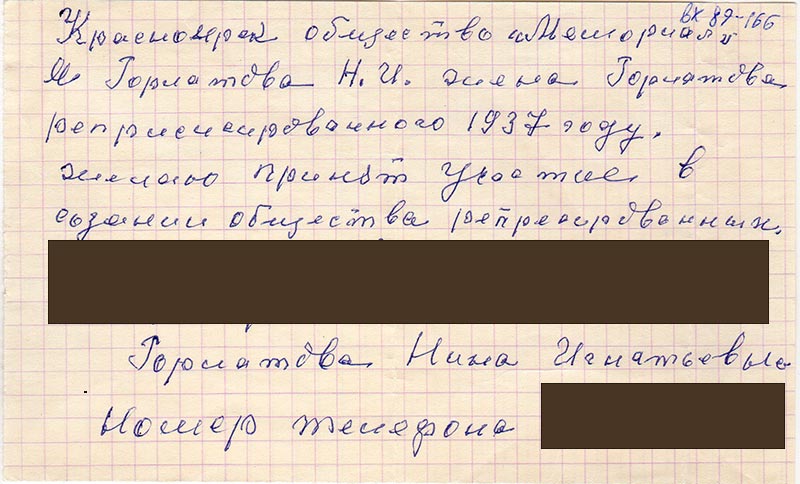 вх 89-166
Красноярск общество "Мемориал"
Я Горлатова Н.И. жена Горлатова
репрнсисированного 1937 году.
желаю принят участие в
созании общества репресированных.
Горлатова Нина Игнатьевна
Номер телефона